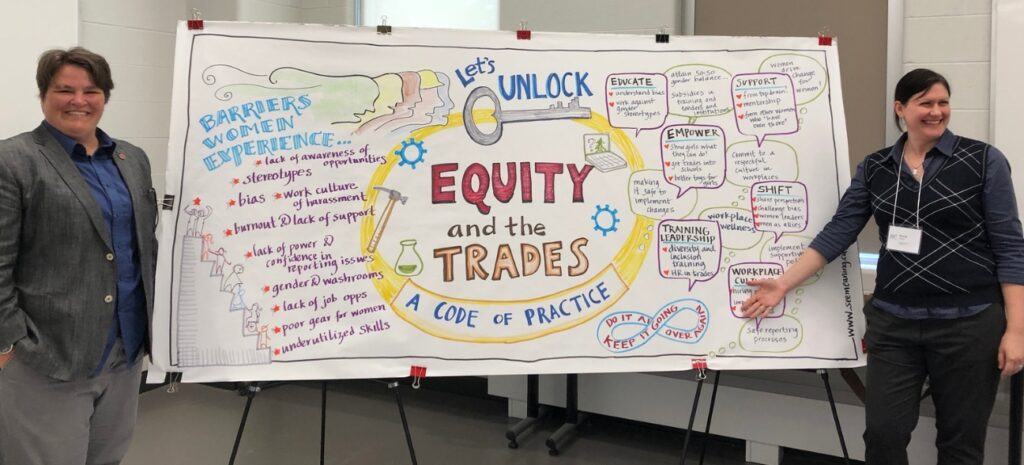 BARRIERS
WOMEN
EXPERIENCE...
lack of awareness of
opportunities
stereotypes
bias
work culture
of harassment
burnout & lack of support
lack of power &
confidence in
reporting issues
gender & washrooms
lack of job opps
poor gear for women
underutilized skills
Let's
UNLOCK
EQUITY
and the
TRADES
A CODE OF PRACTICE
EDUCATE
understand bias
work against
gender
stereotypes
attain 50-50
gender balance
subsidies in
training and
vendors and
institutions
SUPPORT
from top down
mentorship
from other women
who "have
been there"
women
drive
change
for
women
EMPOWER
show girls what
they can do!
get trades into
schools
better toys for girls
making
it safe to
implement
changes
commit to a
respectful
culture in
workplaces
SHIFT
share perspectives
challenge bias
women leaders
men as allies
workplace
wellness
TRAINING
LEADERSHIP
diversity and
inclusion
training
HR in trades
implement
supportive
WORKPLACE
hiring
safe reporting
processes
DO IT
KEEP IT GOING
OVER AGAIN